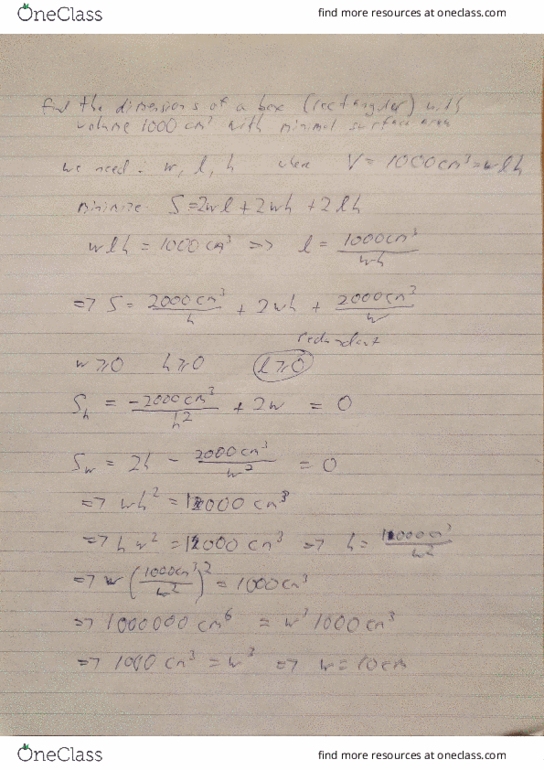 OneClass find more resources at oneclass.com
Find the dimensions of a box (rectangular) with
volume 1000 cm³ with minimal surface area
we need : w, l, h where V = 1000cm³ = wlh
minimize S = 2wl + 2wh + 2lh
wlh = 1000 cm³ => l = 1000cm³/wh
=> S = 2000cm³/h + 2wh + 2000cm³/w
redundant
w≥0 h≥0 l≥0
S_h = -2000cm³/h² + 2w = 0
S_w = 2h - 2000cm³/w² = 0
=> wh² = 1000 cm³
=> hw² = 1000 cm³ => h = 1000cm³/w²
=> w(1000cm³/w²)² = 1000cm³
=> 1000000 cm⁶ = w³ 1000 cm³
=> 1000 cm³ = w³ => w = 10cm
OneClass find more resources at oneclass.com